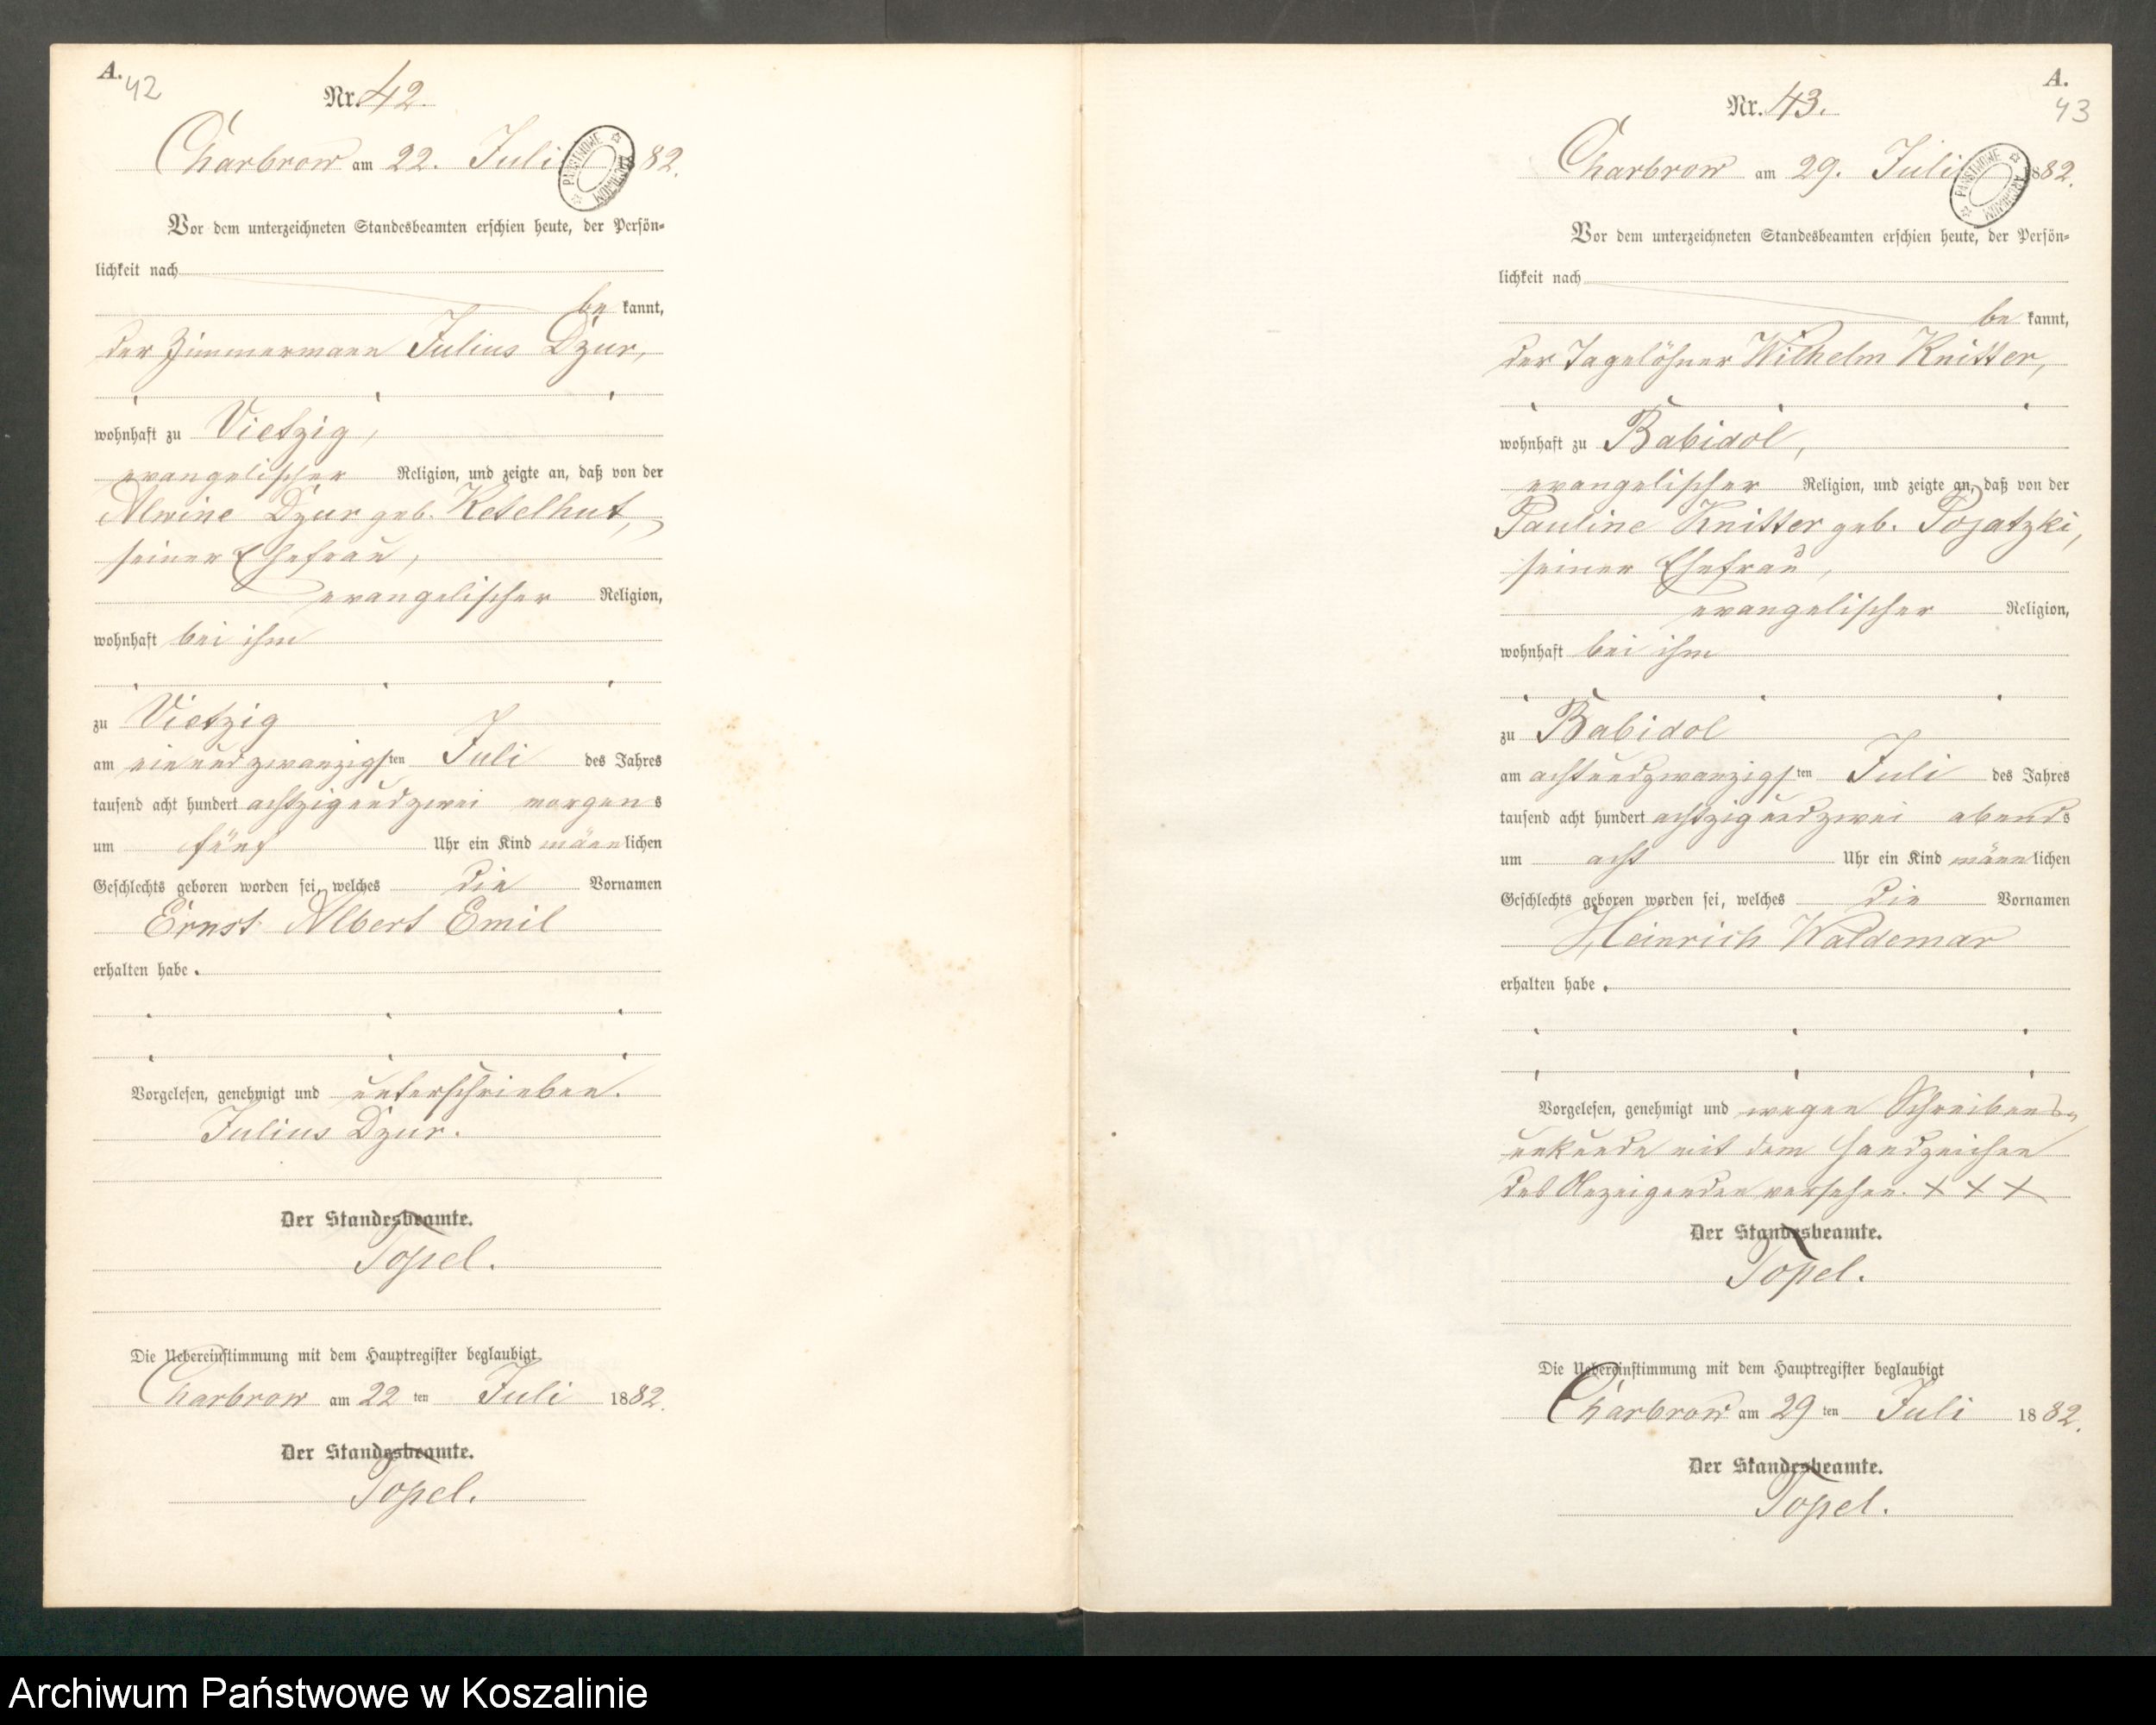 A.
42
Nr. 42.
Charbrow am 22. Juli 1882.
PAŃSTWOWE ARCHIWUM
Vor dem unterzeichneten Standesbeamten erschien heute, der Persön-
lichkeit nach
be kannt,
der Zimmermann Julius Dzur,
wohnhaft zu Vietzig,
evangelischer Religion, und zeigte an, daß von der
Alwine Dzur geb. Ketelhut,
seiner Ehefrau,
evangelischer Religion,
wohnhaft bei ihm
zu Vietzig
am einundzwanzigsten Juli des Jahres
tausend acht hundert achtzigundzwei morgens
um fünf Uhr ein Kind männlichen
Geschlechts geboren worden sei, welches die Vornamen
Ernst Albert Emil
erhalten habe.
Vorgelesen, genehmigt und unterschrieben.
Julius Dzur.
Der Standesbeamte.
Topel.
Die Uebereinstimmung mit dem Hauptregister beglaubigt
Charbrow am 22ten Juli 1882.
Der Standesbeamte.
Topel.
A.
43
Nr. 43.
Charbrow am 29. Juli 1882.
PAŃSTWOWE ARCHIWUM
Vor dem unterzeichneten Standesbeamten erschien heute, der Persön-
lichkeit nach
be kannt,
der Tagelöhner Wilhelm Knitter,
wohnhaft zu Babidol,
evangelischer Religion, und zeigte an, daß von der
Pauline Knitter geb. Pojatzki,
seiner Ehefrau,
evangelischer Religion,
wohnhaft bei ihm
zu Babidol
am achtundzwanzigsten Juli des Jahres
tausend acht hundert achtzigundzwei abends
um acht Uhr ein Kind männlichen
Geschlechts geboren worden sei, welches die Vornamen
Heinrich Waldemar
erhalten habe.
Vorgelesen, genehmigt und wegen Schreibens-
unkunde mit dem Handzeichen
des Anzeigenden versehen. + + +
Der Standesbeamte.
Topel.
Die Uebereinstimmung mit dem Hauptregister beglaubigt
Charbrow am 29ten Juli 1882.
Der Standesbeamte.
Topel.
Archiwum Państwowe w Koszalinie